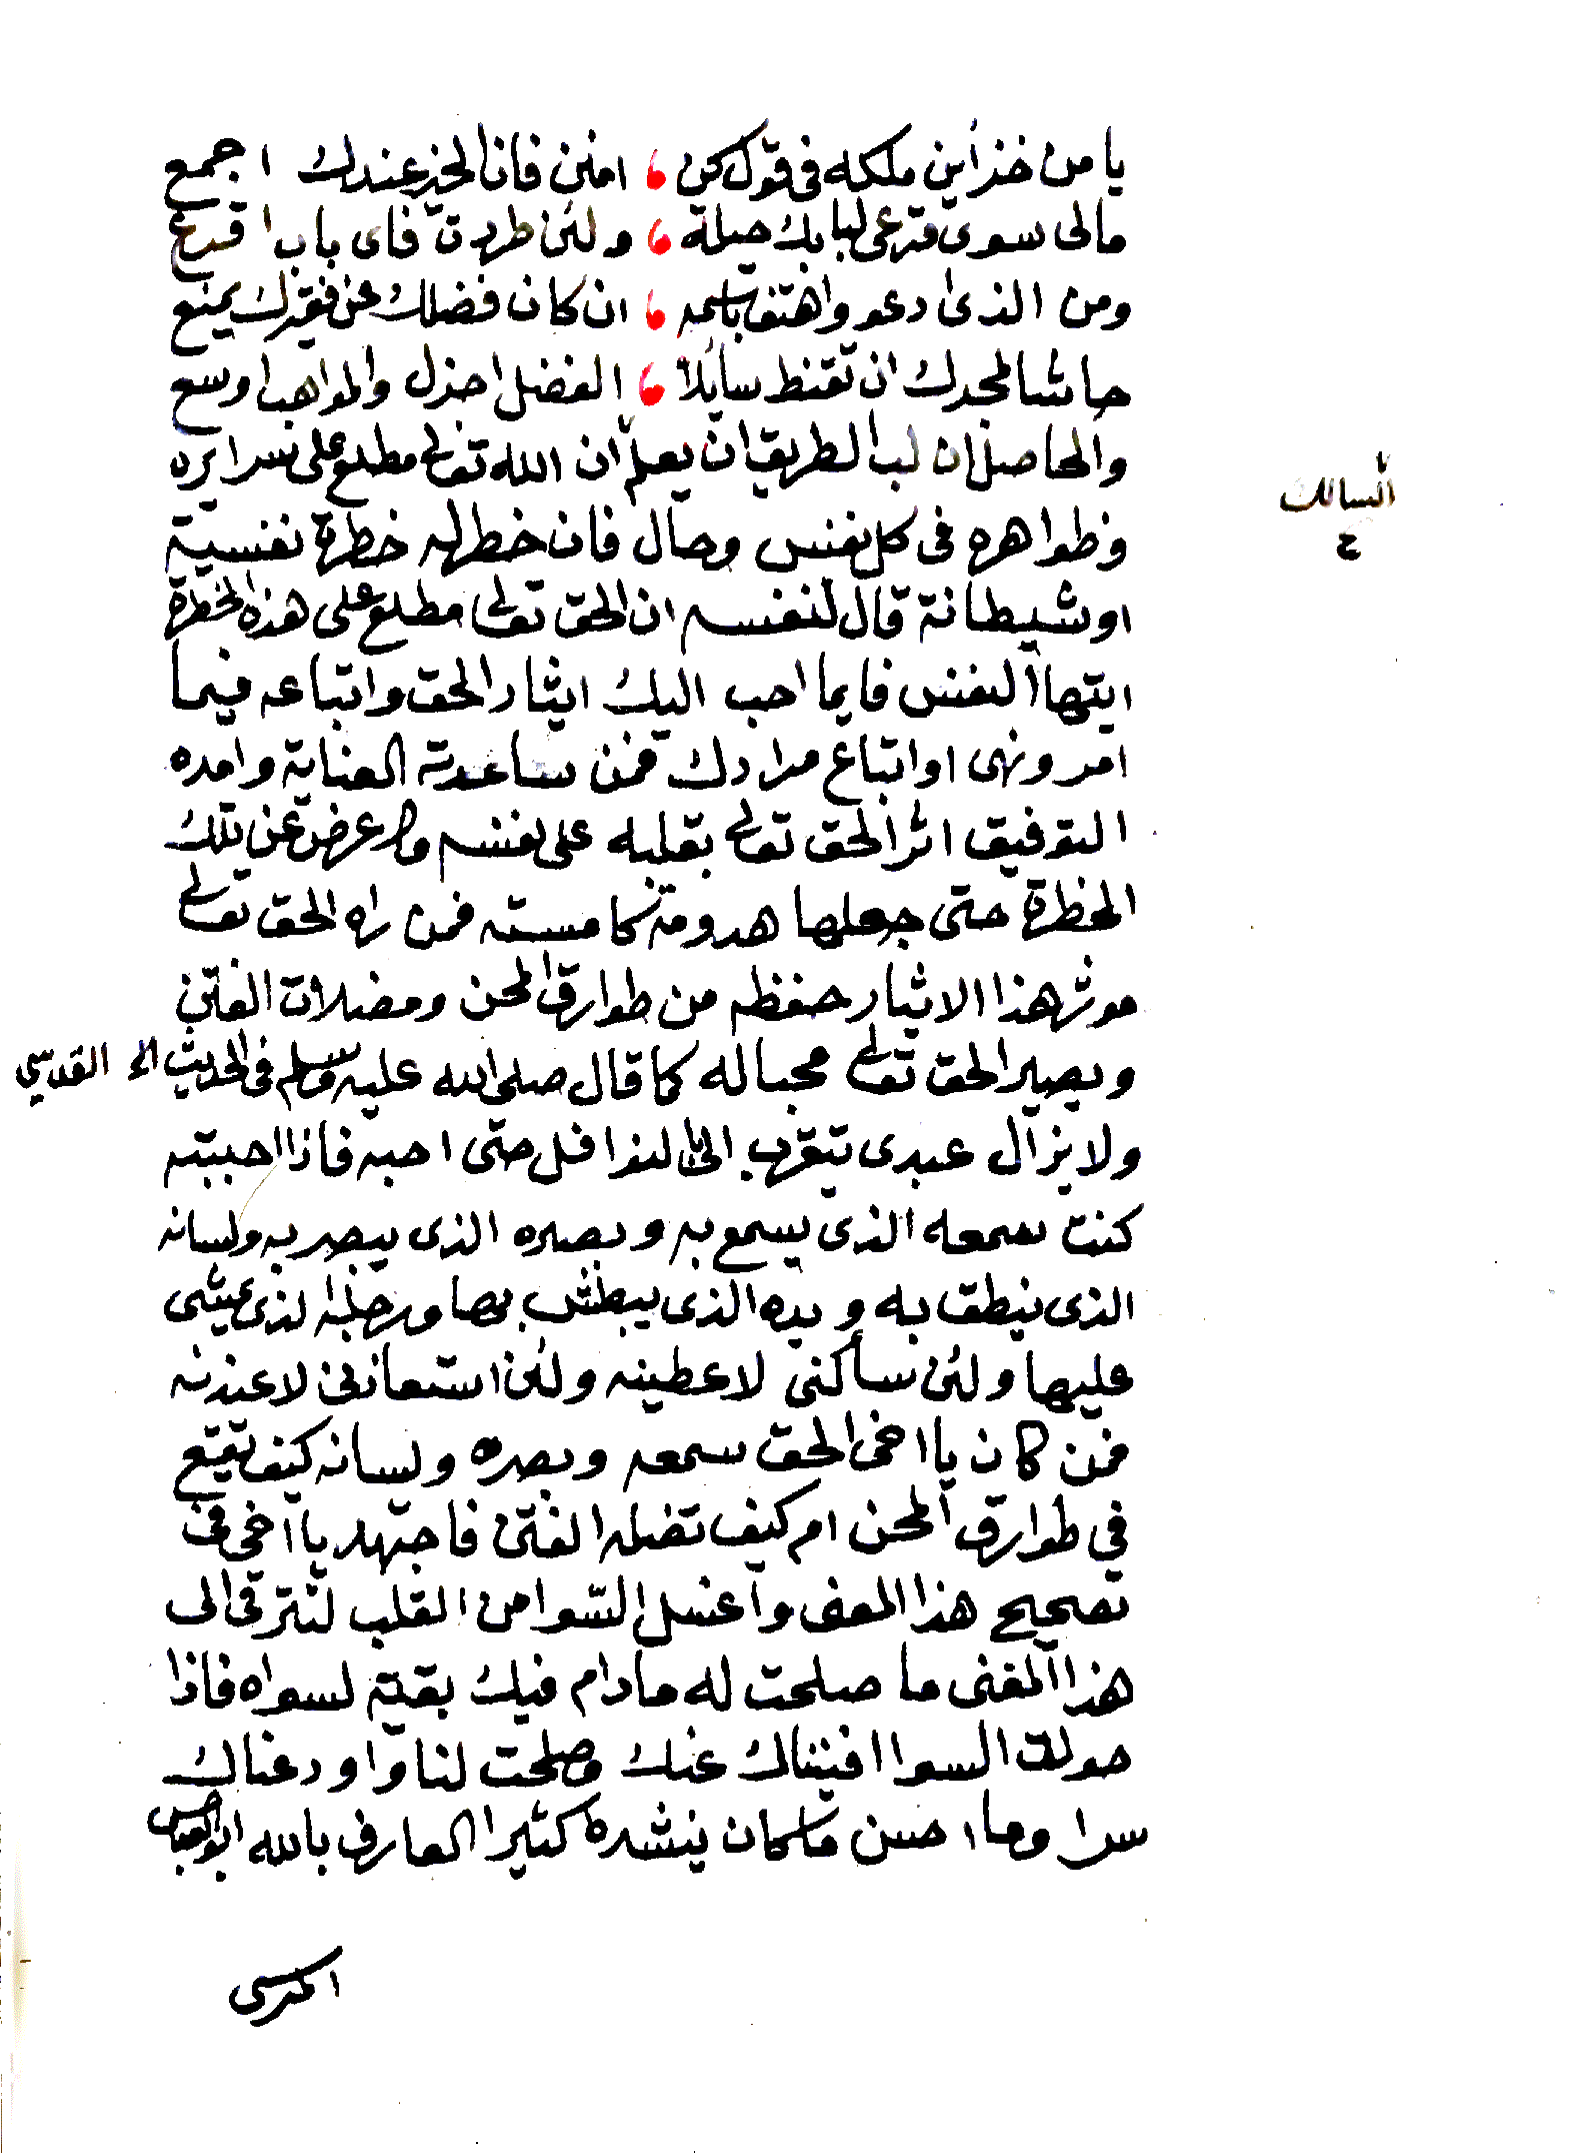 يا من خزاين ملكه في قول كن ، امنن فان الخير عندك اجمع
مالى سوى قرعى لبابك حيلة ، ولئن طردت فاى باب اقرع
ومن الذى ادعو واهتف باسمه ، ان كان فضلك عن فقيرك يمنع
حاشا لمجدك ان تقنط سايلا ، الفضل اجزل والمواهب اوسع
والحاصل ان لب الطريق ان يعلم ان الله تعالى مطلع على سرايره
السالك
وظواهره في كل نفس وحال فان خطر له خطرة نفسية
اوشيطانة قال لنفسه ان الحق تعالى مطلع على هذه الخطرة
ايتها النفس فايما احب اليك ايثار الحق واتباعه فيما
امر ونهى او اتباع مرادك فمن ساعدته العناية وامده
التوفيق اثر الحق تعالى بقلبه على نفسه واعرض عن تلك
الخطرة حتى جعلها فمن راه الحق تعالى
موثر هذا الايثار حفظه من طوارق المحن ومضلات الفتن
ويصير الحق تعالى محبا له كما قال صلى الله عليه وسلم في الحديث القدسي
ولا يزال عبدى يتقرب الى بالنوافل حتى احبه فاذا احببته
كنت سمعه الذى يسمع به وبصره الذى يبصر به ولسانه
الذى ينطق به ويده الذى يبطش بها ورجله الذى يمشى
عليها ولئن سألنى لاعطينه ولئن استعاذنى لاعيذنه
فمن كان يا اخى الحق سمعه وبصره ولسانه كيف تقع
في طوارق المحن ام كيف تضله الفتن فاجتهد يا اخى في
تصحيح هذا المعنى واغسل السوا من القلب لتترقى الى
هذا المعنى ما صلحت له مادام فيك بقية لسواه فاذا
حولت السوا افنيناك عنك وصلحت لنا واودعناك
سرا وما احسن ما كان ينشده كثيرا العارف بالله ابو العباس
المرسى